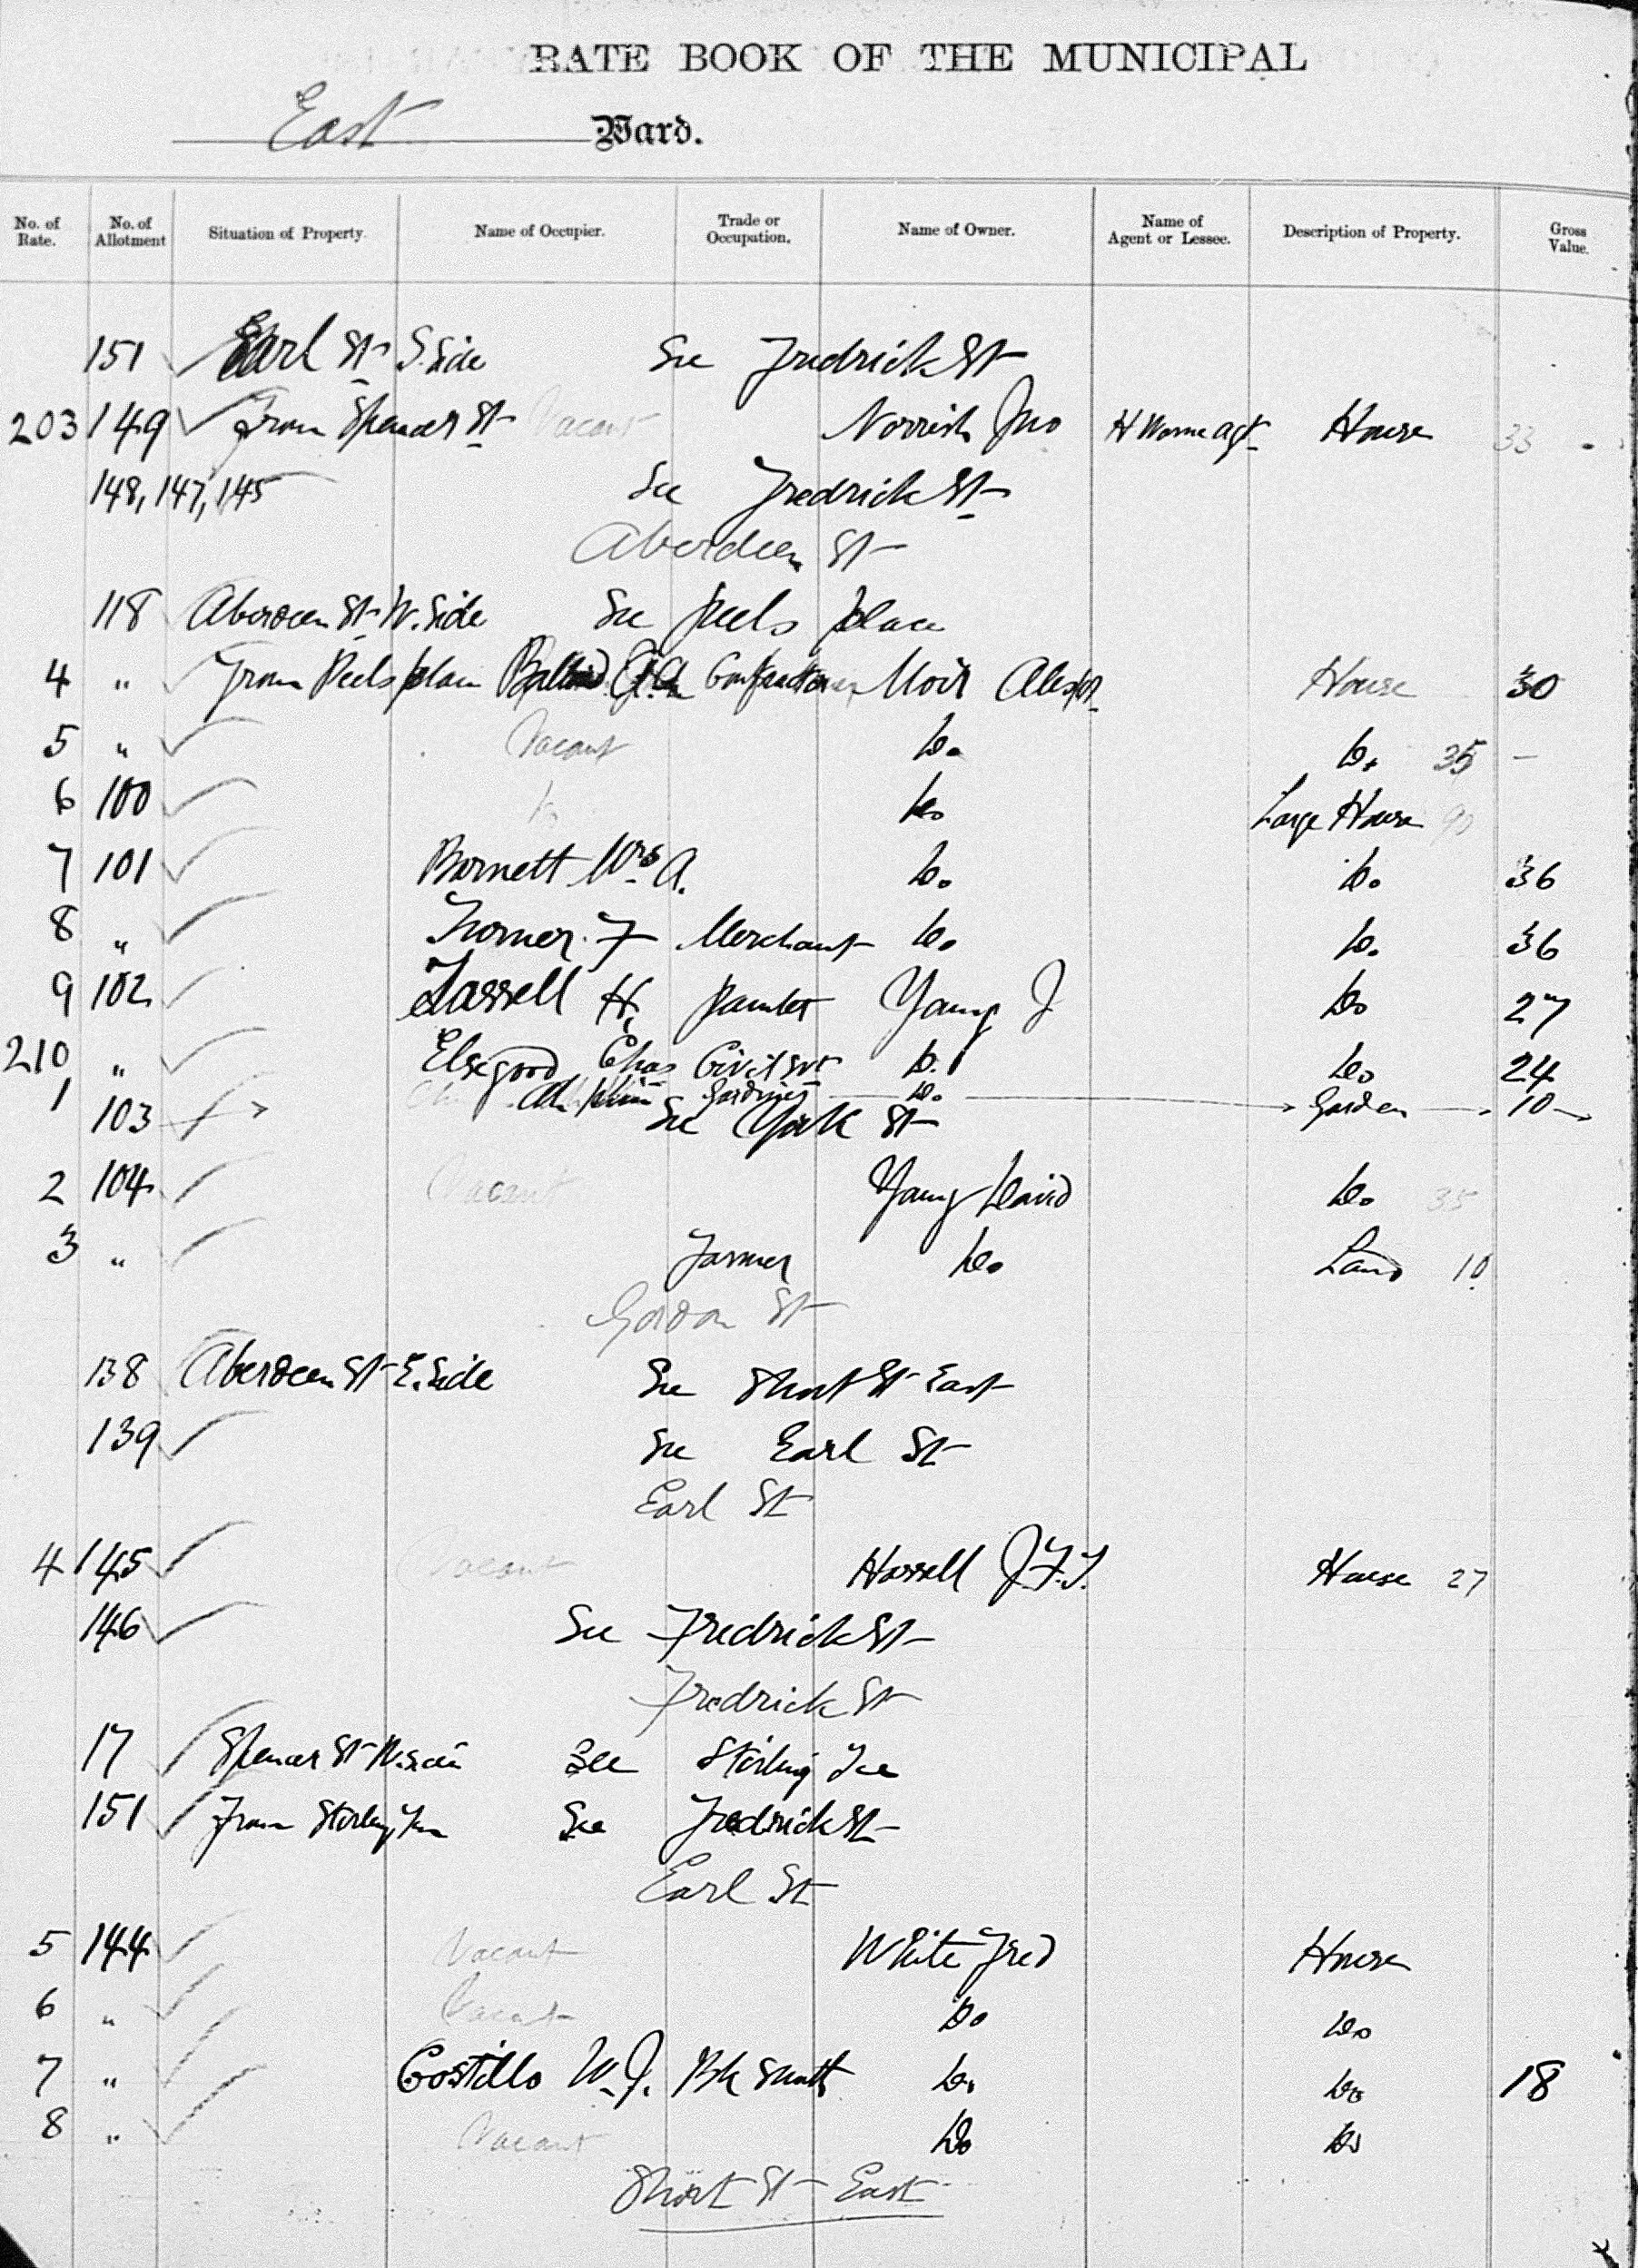 RATE BOOK OF THE MUNICIPAL
East Ward.
No. of Rate. No. of Allotment Situation of Property. Name of Occupier. Trade or Occupation. Name of Owner. Name of Agent or Lessee. Description of Property. Gross Value.
151 Earl St S. Side See Fredrick St
203 149 From Spencer St Vacant Norrish Jno H Worne agt House 33
148, 147, 145 See Fredrick St
Aberdeen St
118 Aberdeen St W. Side See Peels place
4 " From Peels place Moir Alexr House 30
5 " Vacant Do. Do. 35 –
6 100 Do Do Large House 90
7 101 Bornett Mrs A. Do. Do. 36
8 " Merchant Do. Do. 36
9 102 H. Painter Young J Do 27
210 " Elsegood Chas Civil Svt Do. Do 24
1 Ah Gardiner Do. Garden 10
103 See York St
2 104 Vacant Young David Do 35
3 " Farmer Do Land 10
Gordon St
138 Aberdeen St E. Side See Short St East
139 See Earl St
Earl St
4 145 Vacant Horsell J.F.T. House 27
146 See Fredrick St
Fredrick St
17 Spencer St W. Side See Stirling Tce
151 From Stirling Tce See Fredrick St
Earl St
5 144 Vacant White Fred House
6 " Vacant Do Do
7 " Costillo W.J. Blk Smith Do. Do 18
8 " Vacant Do Do
Short St East